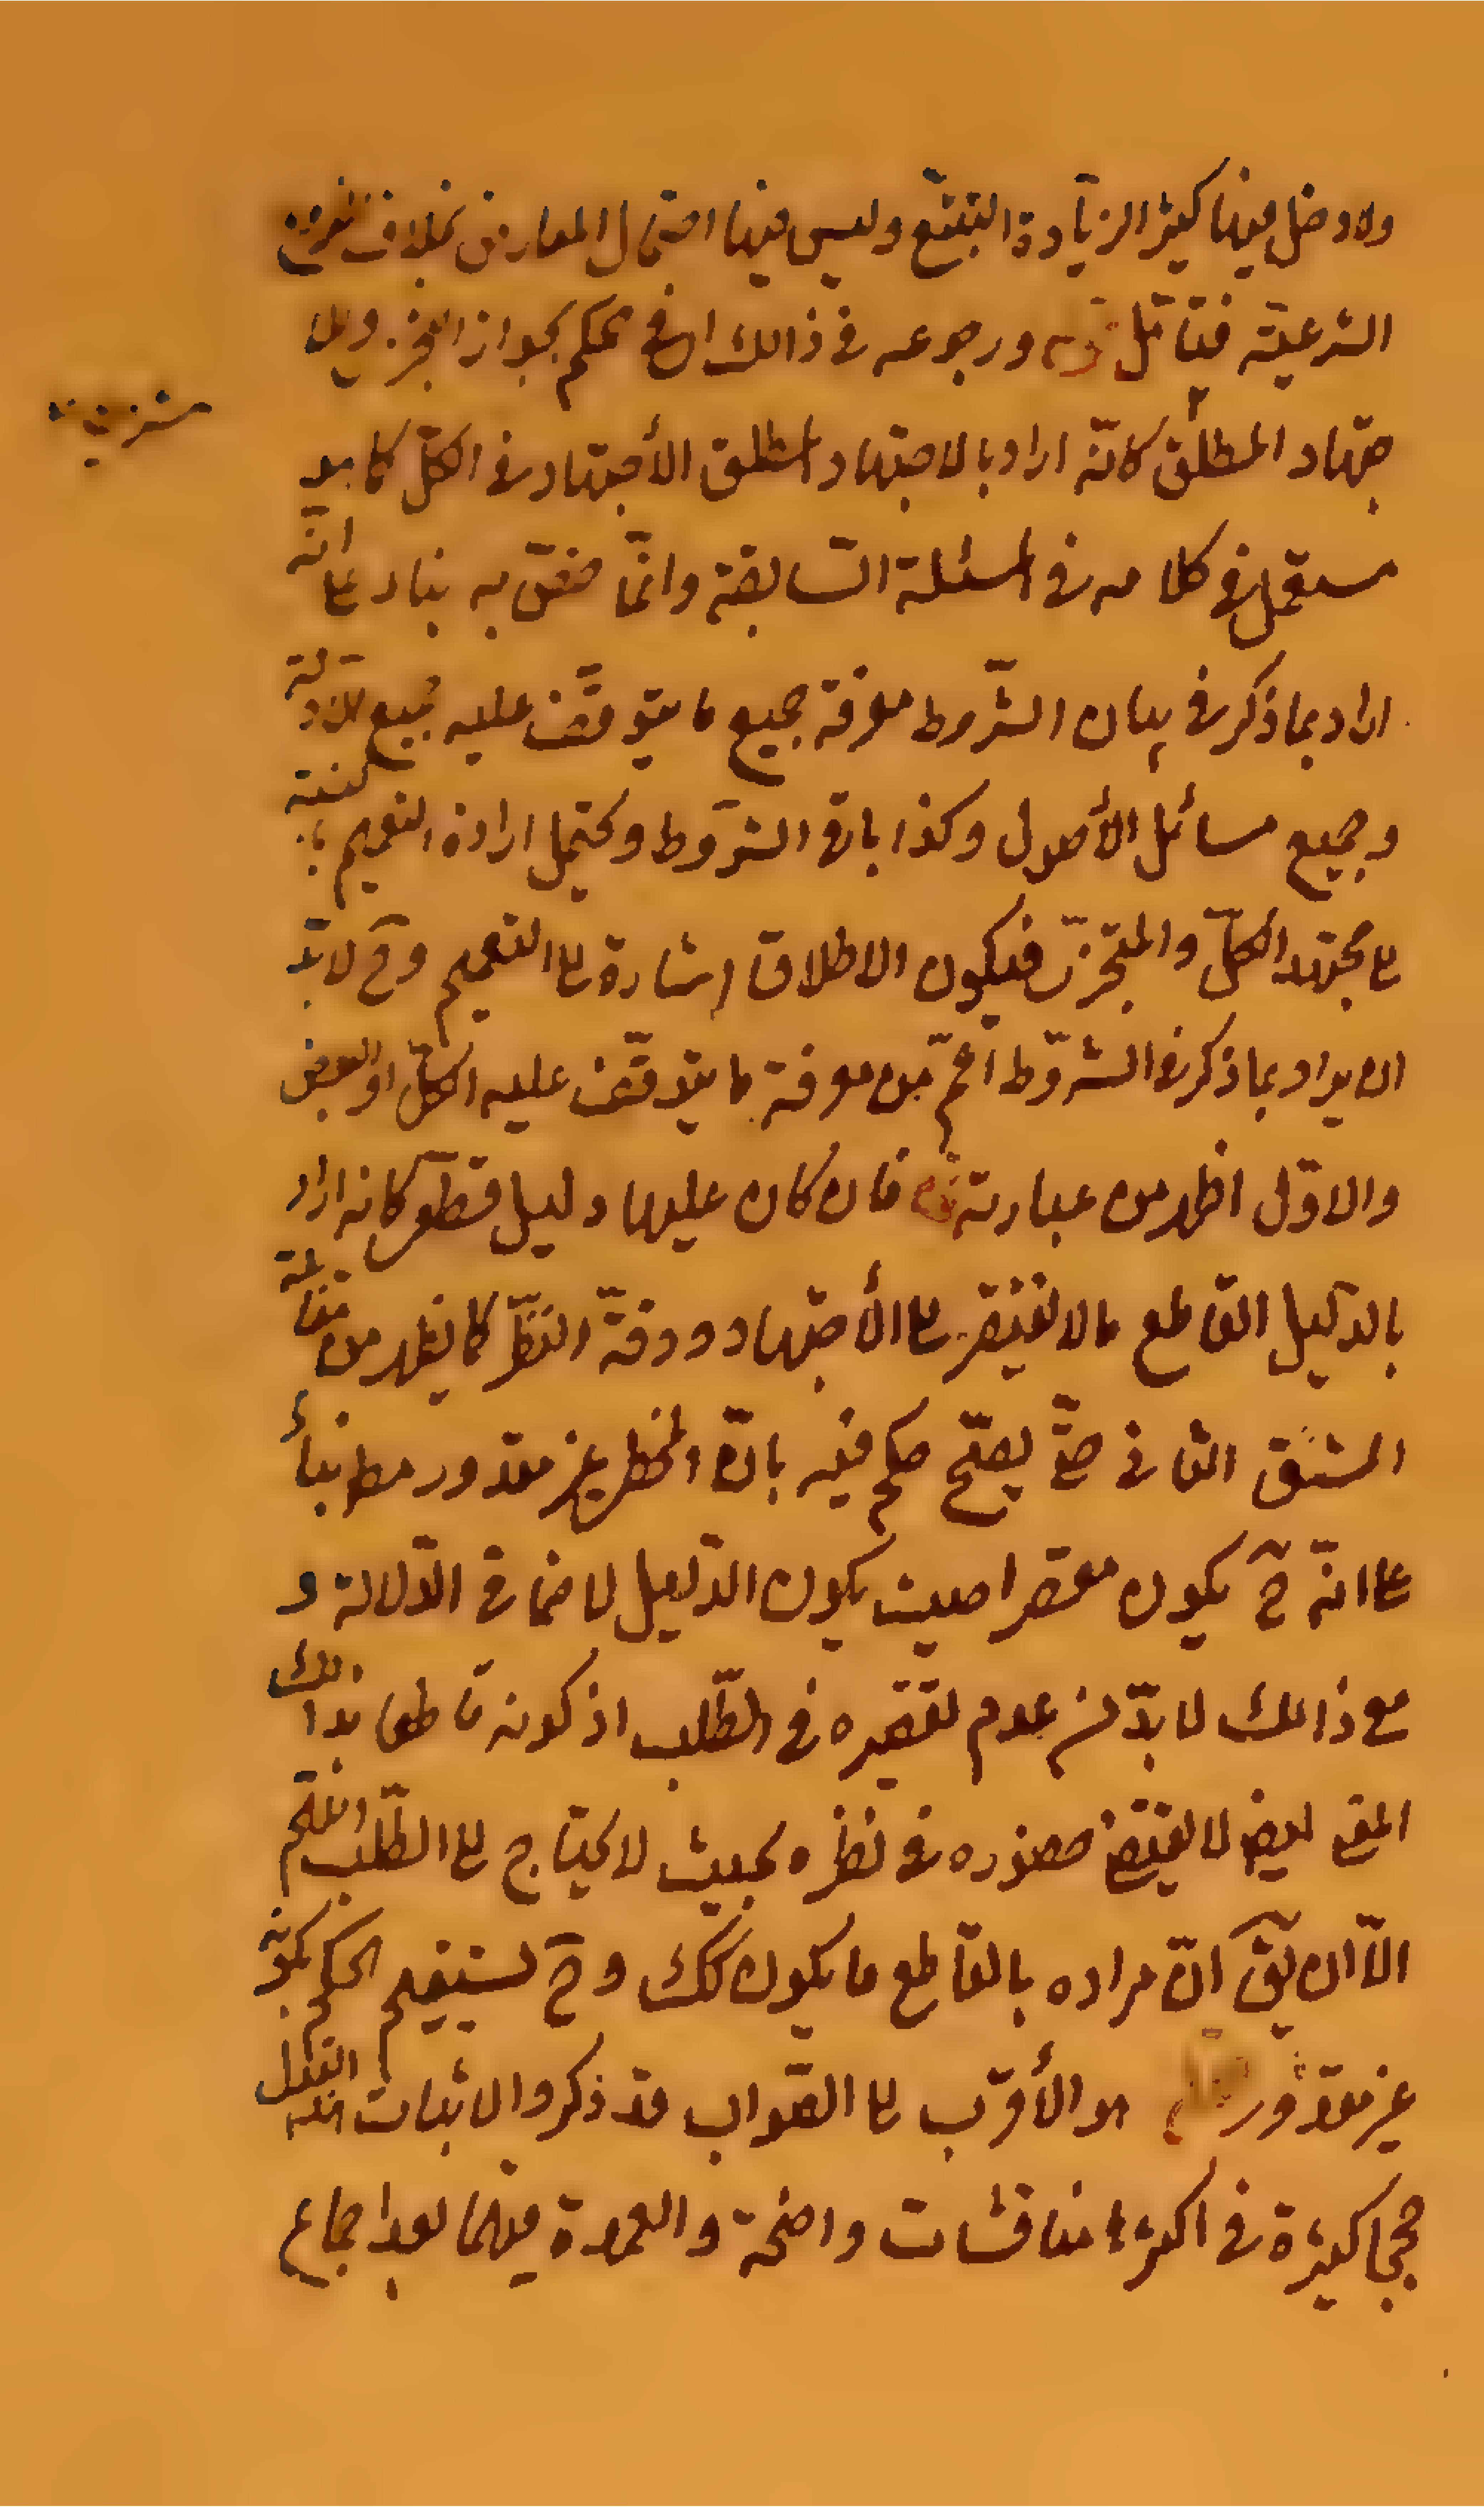 ولا دخل فيها كثير الزيادة التتبع وليس فيها احتمال المعارض بخلاف
الشرعية فتأمل قوله ورجوعه في ذالك الى حكم بجواز التجزي
جتهاد المطلق كانه اراد بالاجتهاد المطلق الأجتهاد في الكل كما
مستعمل في كلامه في المسئلة السابقة وانما خص به بناء على انه
اراد بما ذكر في بيان الشروط معرفة جميع ما يتوقف عليه جميع الادلة
وجميع مسائل الأصول وكذا باقي الشروط ويحتمل ارادة التعميم بالنسبة
الى مجتهد الكل والمتجزي فيكون الاطلاق اشارة الى التعميم وح لا بد
ان يراد بما ذكر في الشروط اعم من معرفة ما يتوقف عليه الكل او البعض
والاول اظهر من عبارته قوله فان كان عليها دليل قطعي كانه اراد
بالدليل القاطع ما لا يفتقر الى الأجتهاد ودقة النظر كما يظهر من مقابلة
الشق الثاني حتى يصح حكمه فيه بان المخطئ غير معذور مط بناءً
على انه ح يكون مقصرا حيث يكون الدليل لا خفا في الدلالة و
مع ذالك لا بد من عدم تقصيره في الطلب اذ كونه قاطعا بذالك
المعنى ايضا لا يقتضي حضوره في نظره بحيث لا يحتاج الى الطلب اللهم
الا ان يق ان مراده بالقاطع ما يكون كك وح يستقيم الحكم بكونه
غير معذور قوله هو الأقرب الى الصواب قد ذكروا لاثبات هذا القول
حججا كثيرة في اكثرها مناقشات واضحة والعمدة فيها بعد اجماع